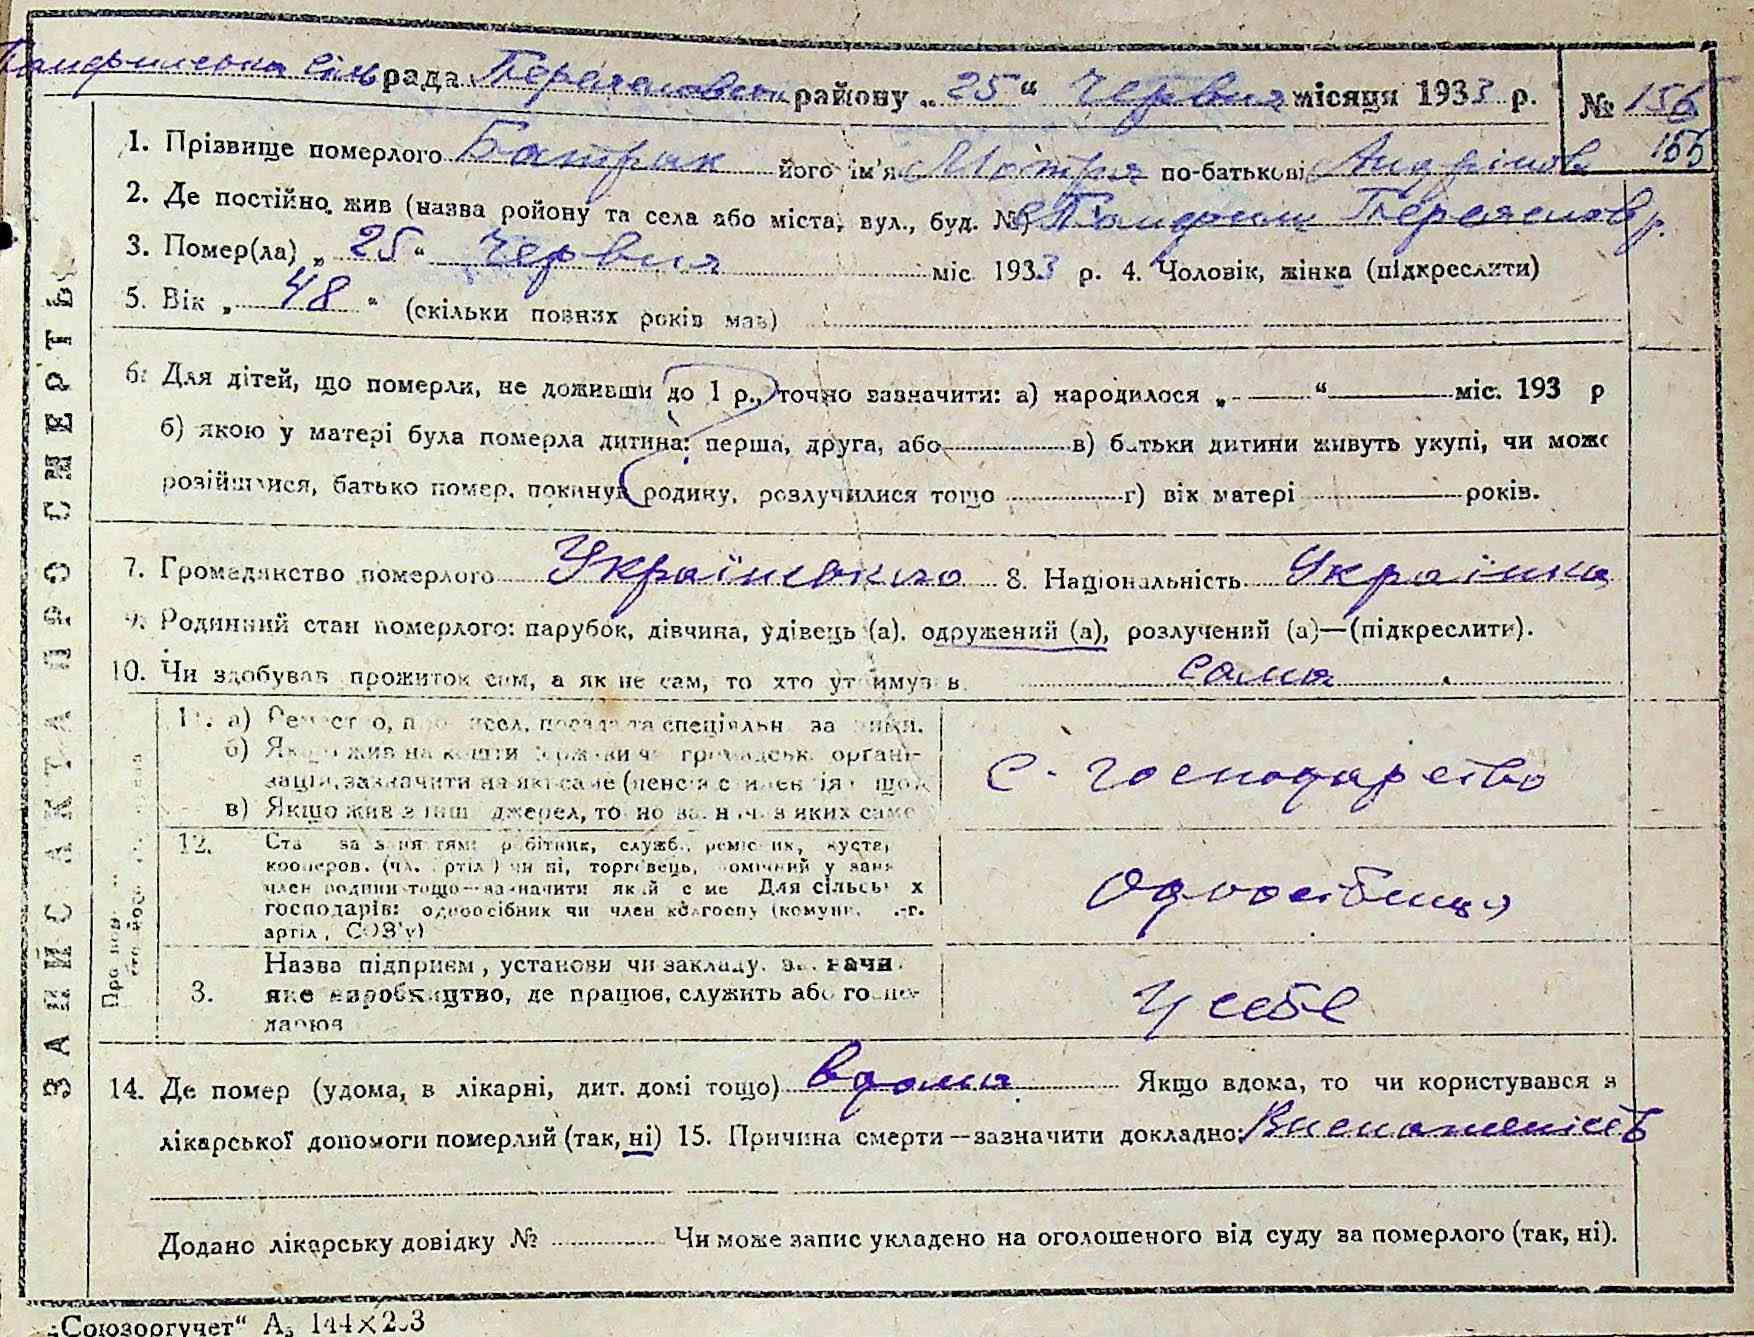 Помфилська сільрада Переяславськ району „25“ Червня місяця 1933 р. № 156
155
1. Прізвище померлого Батрак його ім'я Мотря по-батькові Андріївна
2. Де постійно жив (назва району та села або міста, вул., буд. №) Переяславр.
3. Помер(ла) „25“ Червня міс 1933 р. 4. Чоловік, жінка (підкреслити)
5. Вік „48“ (скільки повних років мав)
6. Для дітей, що померли, не доживши до 1 р., точно зазначити: а) народилося „ “ міс. 193 р
б) якою у матері була померла дитина: перша, друга, або в) батьки дитини живуть укупі, чи може
розійшлися, батько помер, покинув родину, розлучилися тощо г) вік матері років.
7. Громадянство померлого Українського 8. Національність Українка
9. Родинний стан померлого: парубок, дівчина, удівець (а), одружений (а), розлучений (а)—(підкреслити).
10. Чи здобував прожиток сам, а як не сам, то хто утримував сама
11. а) посада та за
б) Якщо жив на кошти держави чи громадськ. органі-
зацій, зазначити на які саме
в) Якщо жив з інш джерел, то з яких саме
С-господарство
12. робітник, служб.,
кооперов. торговець,
член родини тощо—зазначити Для сільськ х
господарів: одноосібник чи член колгоспу (комуни,
артіл, СОЗ'у)
Одноосібниця
Назва підприєм, установи чи закладу,
3. яке виробництво, де працює, служить або госпо-
дарює
У себе
14. Де помер (удома, в лікарні, дит. домі тощо) вдома Якщо вдома, то чи користувався з
лікарської допомоги померлий (так, ні) 15. Причина смерти—зазначити докладно: Виснаженість
Додано лікарську довідку № Чи може запис укладено на оголошеного від суду за померлого (так, ні).
ЗАПИС АКТА ПРО СМЕРТЬ
„Союзоргучет“ А₅ 144×203